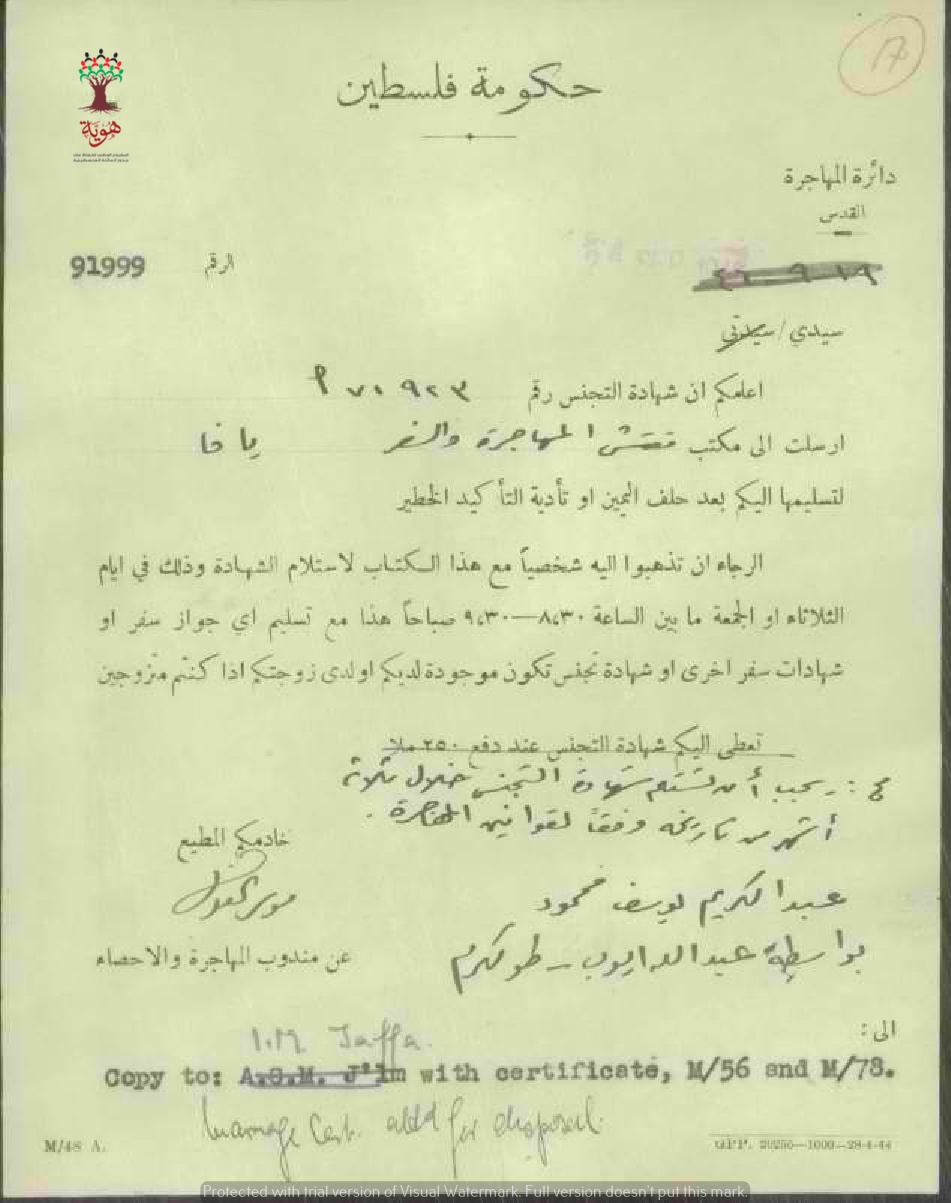 17
حكومة فلسطين
هوية
دائرة المهاجرة
القدس
91999 الرقم
٤٦ - ٩ - ١٩
سيدي / سيدتي
اعلمكم ان شهادة التجنس رقم ٧٠٩٢٣
ارسلت الى مكتب مفتش المهاجرة والسفر يافا
لتسليمها اليكم بعد حلف اليمين او تأدية التأكيد الخطير
الرجاء ان تذهبوا اليه شخصياً مع هذا الكتاب لاستلام الشهادة وذلك في ايام
الثلاثاء او الجمعة ما بين الساعة ٨،٣٠—٩،٣٠ صباحاً هذا مع تسليم اي جواز سفر او
شهادات سفر اخرى او شهادة تجنس تكون موجودة لديكم او لدى زوجتكم اذا كنتم متزوجين
تعطى اليكم شهادة التجنس عند دفع ٢٥٠ ملا
يجب أن تستلم شهادة التجنس خلال ثلاثة
أشهر من تاريخه وفقاً لقوانين المهاجرة .
خادمكم المطيع
عبد الكريم يوسف محمود
بواسطة عبد الله ايوب - طولكرم
عن مندوب المهاجرة والاحصاء
الى :
I.M. Jaffa.
Copy to: A.S.M. J'lm with certificate, M/56 and M/78.
Marriage Cert. attd for disposal.
M/48 A.
GPP. 20256—1000—28-4-44
Protected with trial version of Visual Watermark. Full version doesn't put this mark.